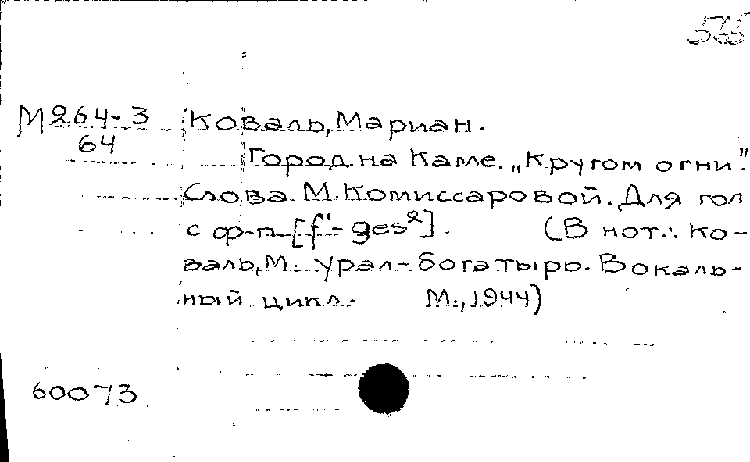 565
М 264-3 Коваль, Мариан.
64
Город на Каме. „Кругом огни".
Слова М. Комиссаровой. Для гол
с ф-п [f'- ges²]. (В нот.: Ко-
валь, М. Урал-богатырь. Вокаль-
ный цикл. М., 1944)
60073